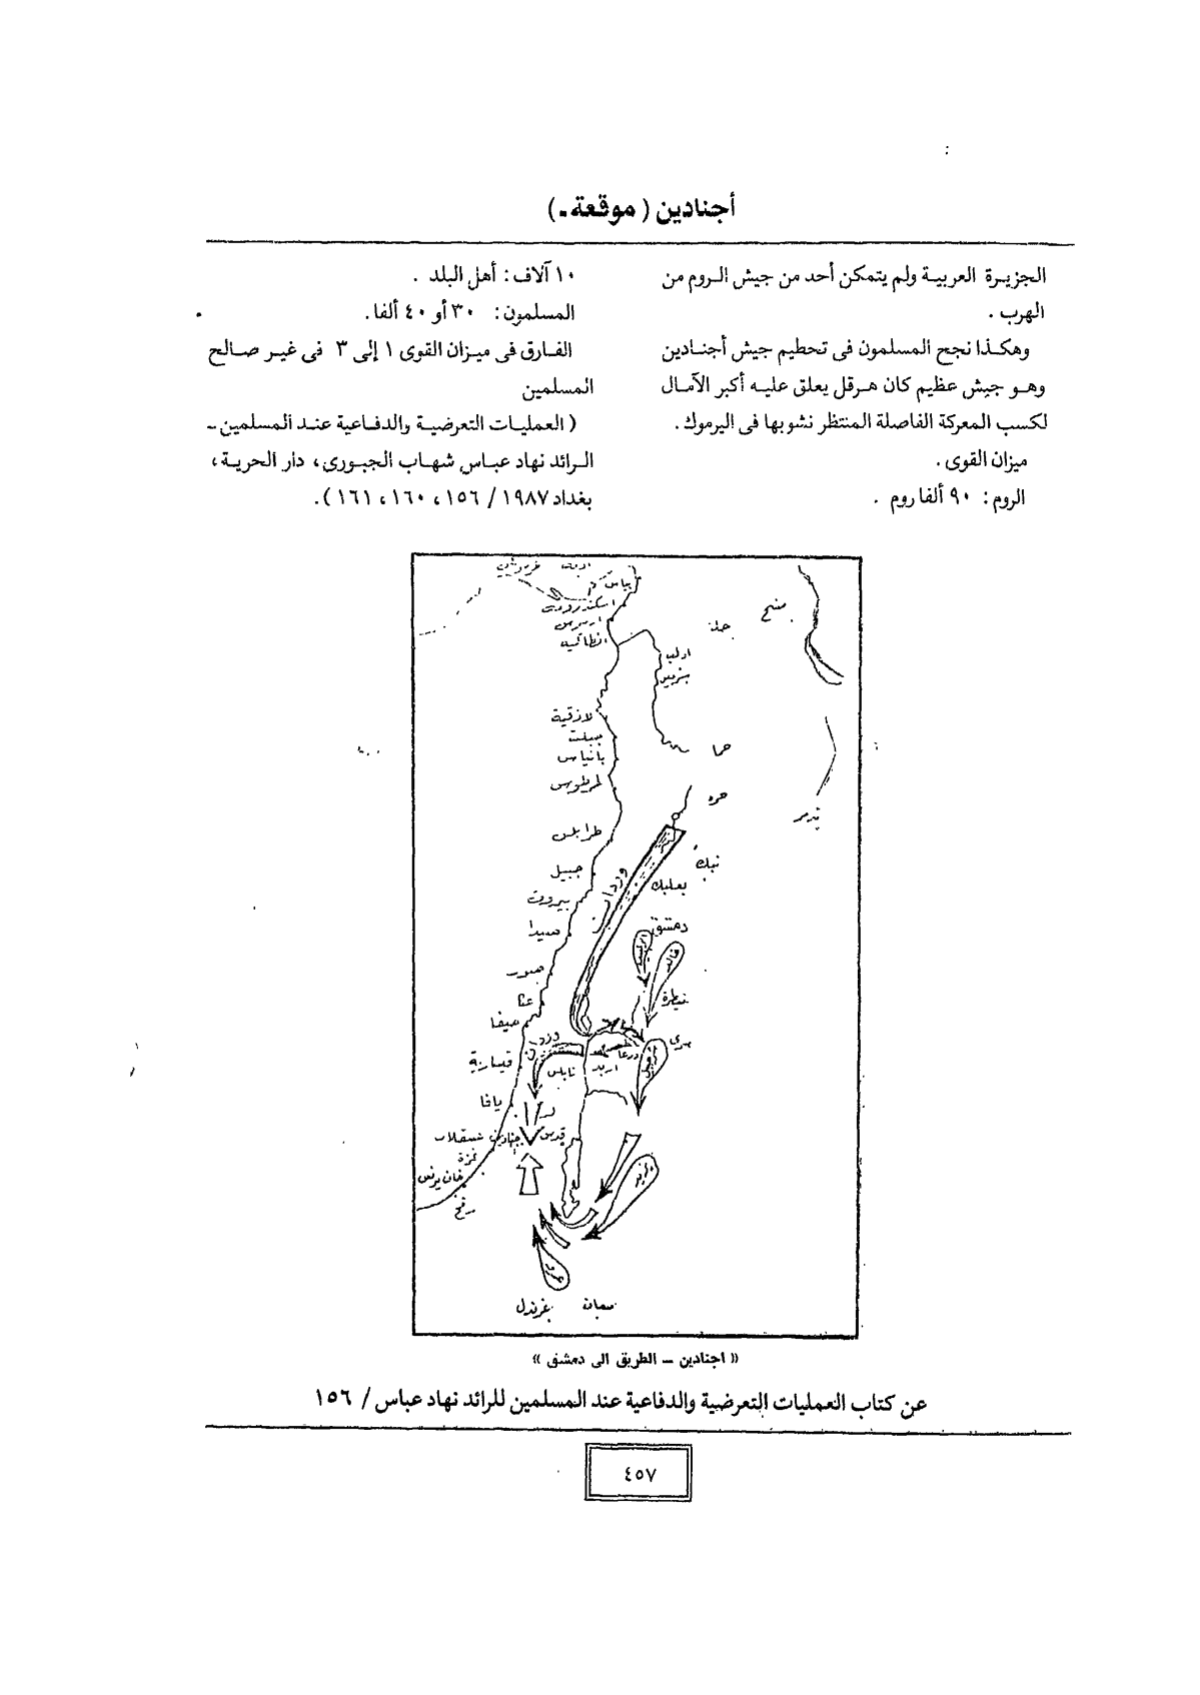 أجنادين (موقعة ـ)
الجزيرة العربية ولم يتمكن أحد من جيش الروم من
الهرب .
وهكذا نجح المسلمون فى تحطيم جيش أجنادين
وهو جيش عظيم كان هرقل يعلق عليه أكبر الآمال
لكسب المعركة الفاصلة المنتظر نشوبها فى اليرموك .
ميزان القوى .
الروم : ٩٠ ألفا روم .
١٠ آلاف : أهل البلد .
المسلمون : ٣٠ أو ٤٠ ألفا .
الفارق فى ميزان القوى ١ إلى ٣ فى غير صالح
المسلمين
( العمليات التعرضية والدفاعية عند المسلمين ـ
الرائد نهاد عباس شهاب الجبورى ، دار الحرية ،
بغداد ١٩٨٧ / ١٥٦ ، ١٦٠ ، ١٦١ ) .
بياس
اسكندرونة
انطاكيه
منبج
ادلب
لاذقية
جبلت
بانياس
طرطوس
حما
تدمر
طرابلس
جبيل
نبك
بعلبك
بيروت
وردان
صيدا
دمشق
خالد
صور
عكا
حيفا
وردان
درعا
قيسارية
نابلس
اربد
يافا
لد
قدس
اجنادين
عسقلان
غزة
خان يونس
رفح
عمرو
غرندل
معان
« اجنادين ــ الطريق الى دمشق »
عن كتاب العمليات التعرضية والدفاعية عند المسلمين للرائد نهاد عباس / ١٥٦
٤٥٧